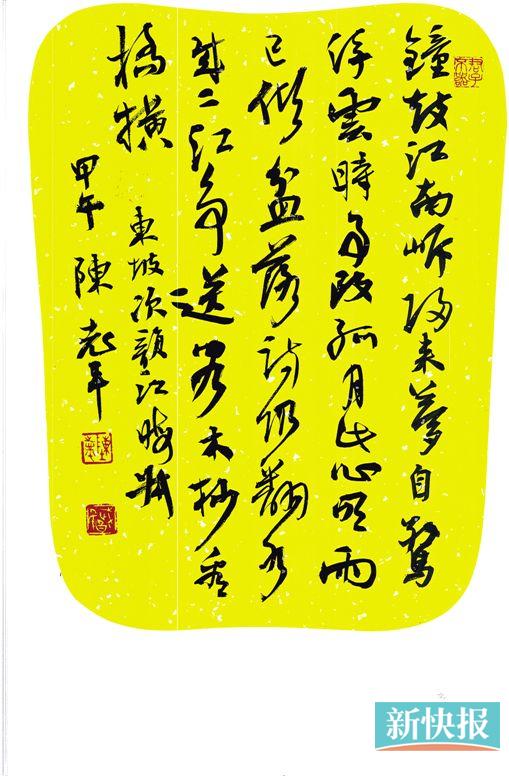 鐘鼓江南岸歸来夢自驚
浮雲時事改孤月此心明雨
已傾盆落詩仍翻水
成二江争送客木杪看
橋横
東坡次韻江晦叔
甲午 陳
新快报